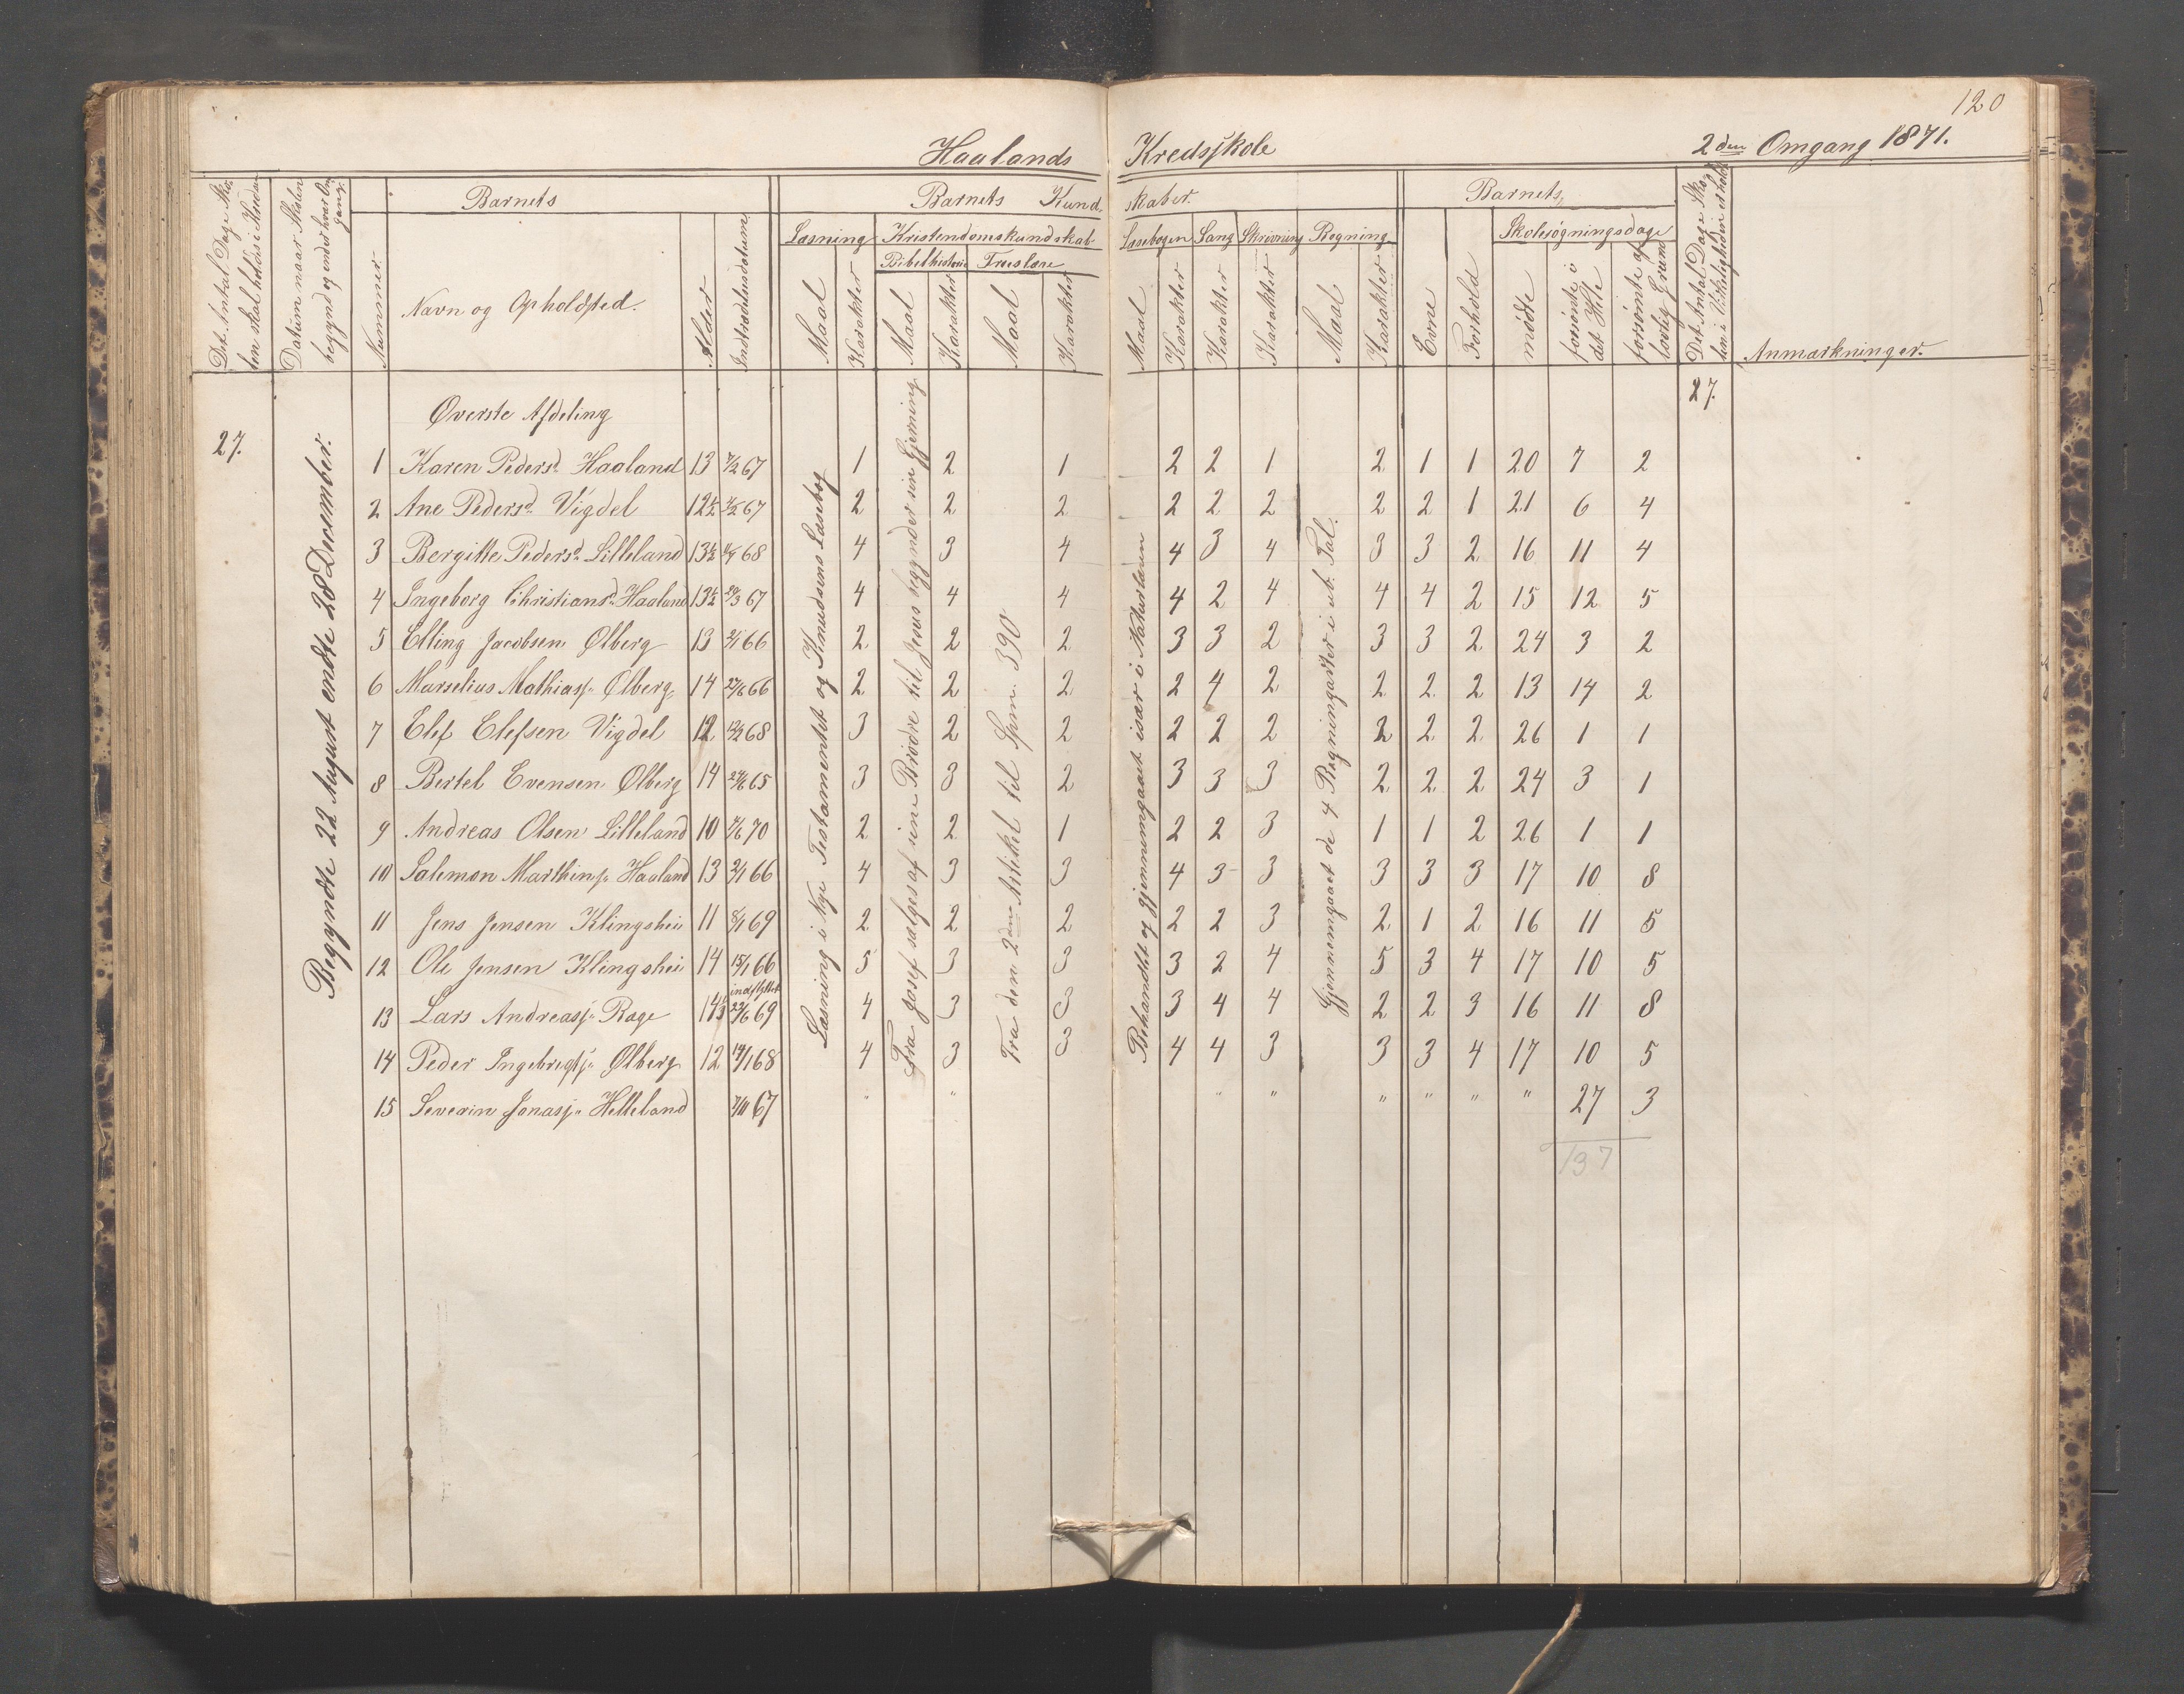 120
Haalands Kredsskole 2den Omgang 1871.
Det Antal Dage Skolen skal holdes i Kredsen
Datum naar Skolen begynder og ender hver Omgang.
Nummer.
Barnets
Navn og Opholdsted.
Alder
Indtrædelsesdatum
Barnets Kundskaber.
Læsning
Maal
Karakter
Kristendomskundskab.
Bibelhistorie
Maal
Karakter
Troeslære
Maal
Karakter
Læsebogen
Maal
Karakter
Sang
Karakter
Skrivning
Karakter
Regning
Maal
Karakter
Barnets
Evne
Forhold
Skolesøgningsdage
mødte
forsømte i det Hele
forsømte af lovlig Grund
Det Antal Dage Skolen i Virkeligheden er holdt
Anmærkninger.
27.
Begyndte 22 August endte 28 December.
Øverste Afdeling
27.
Læsning i Nye Testamentet og Knudsens Læsebog
Fra Josef sælges af sine Brødre til Jesus begynder sin Gjerning
Fra den 2den Artikel til Spm. 390
Behandlet og gjennemgaaet især i Naturlæren
Gjennemgaaet de 4 Regningsarter i ub. Tal.
1 Karen Pedersd. Haaland 13 7/2 67 1 2 1 2 2 1 2 1 1 20 7 2
2 Ane Pedersd. Vigdel 12½ 67 2 2 2 2 2 2 2 2 1 21 6 4
3 Bergitte Pedersd. Lilleland 13½ 68 4 3 4 4 3 4 3 3 2 16 11 4
4 Ingeborg Christiansd. Haaland 13½ 29/3 67 4 4 4 4 2 4 4 4 2 15 12 5
5 Elling Jacobsen Ølberg 13 2/1 66 2 2 2 3 3 2 3 3 2 24 3 2
6 Marselius Mathiass. Ølberg 14 27/6 66 2 2 2 2 4 2 2 2 2 13 14 2
7 Elef Elefsen Vigdel 12 68 3 2 2 2 2 2 2 2 2 26 1 1
8 Bertel Evensen Ølberg 14 27/6 65 3 3 2 3 3 3 2 2 2 24 3 1
9 Andreas Olsen Lilleland 10 7/6 70 2 2 1 2 2 3 1 1 2 26 1 1
10 Salemon Marthins. Haaland 13 2/1 66 4 3 3 4 3 3 3 3 3 17 10 8
11 Jens Jensen Klingshei 11 8/1 69 2 2 2 2 2 3 2 1 2 16 11 5
12 Ole Jensen Klingshei 14 15/1 66 5 3 3 3 2 4 5 3 4 17 10 5
indflyttet
13 Lars Andreass. Rage 14½ 22/6 69 4 3 3 3 4 4 2 2 3 16 11 8
14 Peder Ingebregts. Ølberg 12 14/1 68 4 3 3 4 4 3 3 3 4 17 10 5
15 Severin Jonass. Helleland 7/11 67 " " " " " " " " 27 3
137